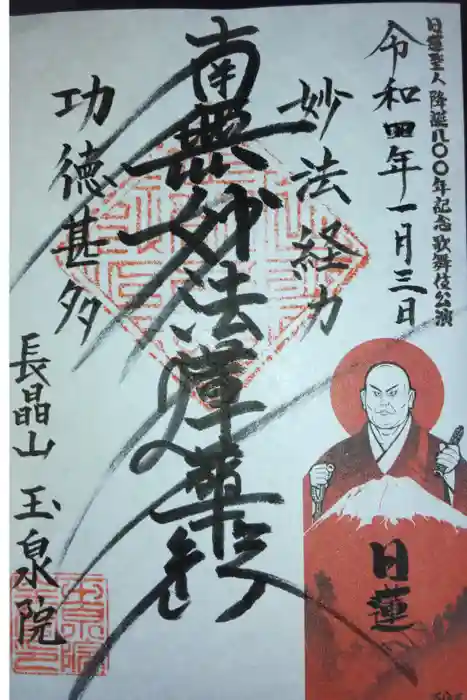 日蓮聖人 降誕八〇〇年記念 歌舞伎公演
令和四年一月三日
妙法経力
南無妙法蓮華経
功徳甚多
長晶山 玉泉院
日蓮